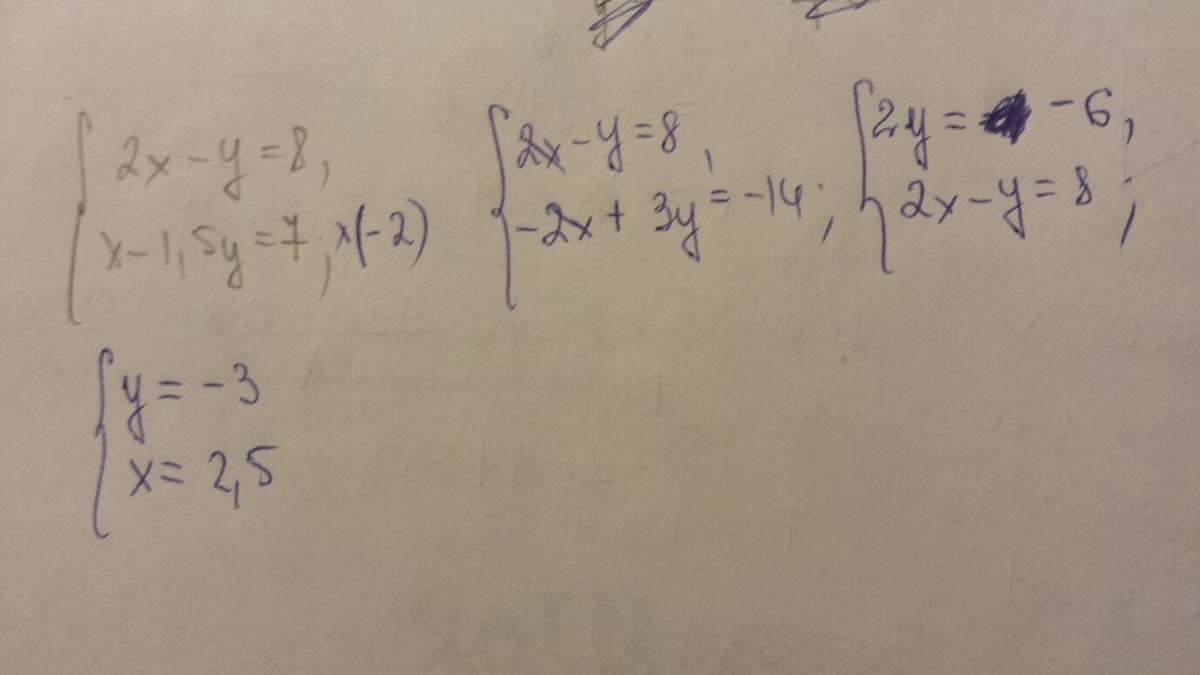 2x - y = 8,
x - 1,5y = 7; x(-2)
2x - y = 8,
-2x + 3y = -14;
2y = -6,
2x - y = 8;
y = -3
x = 2,5